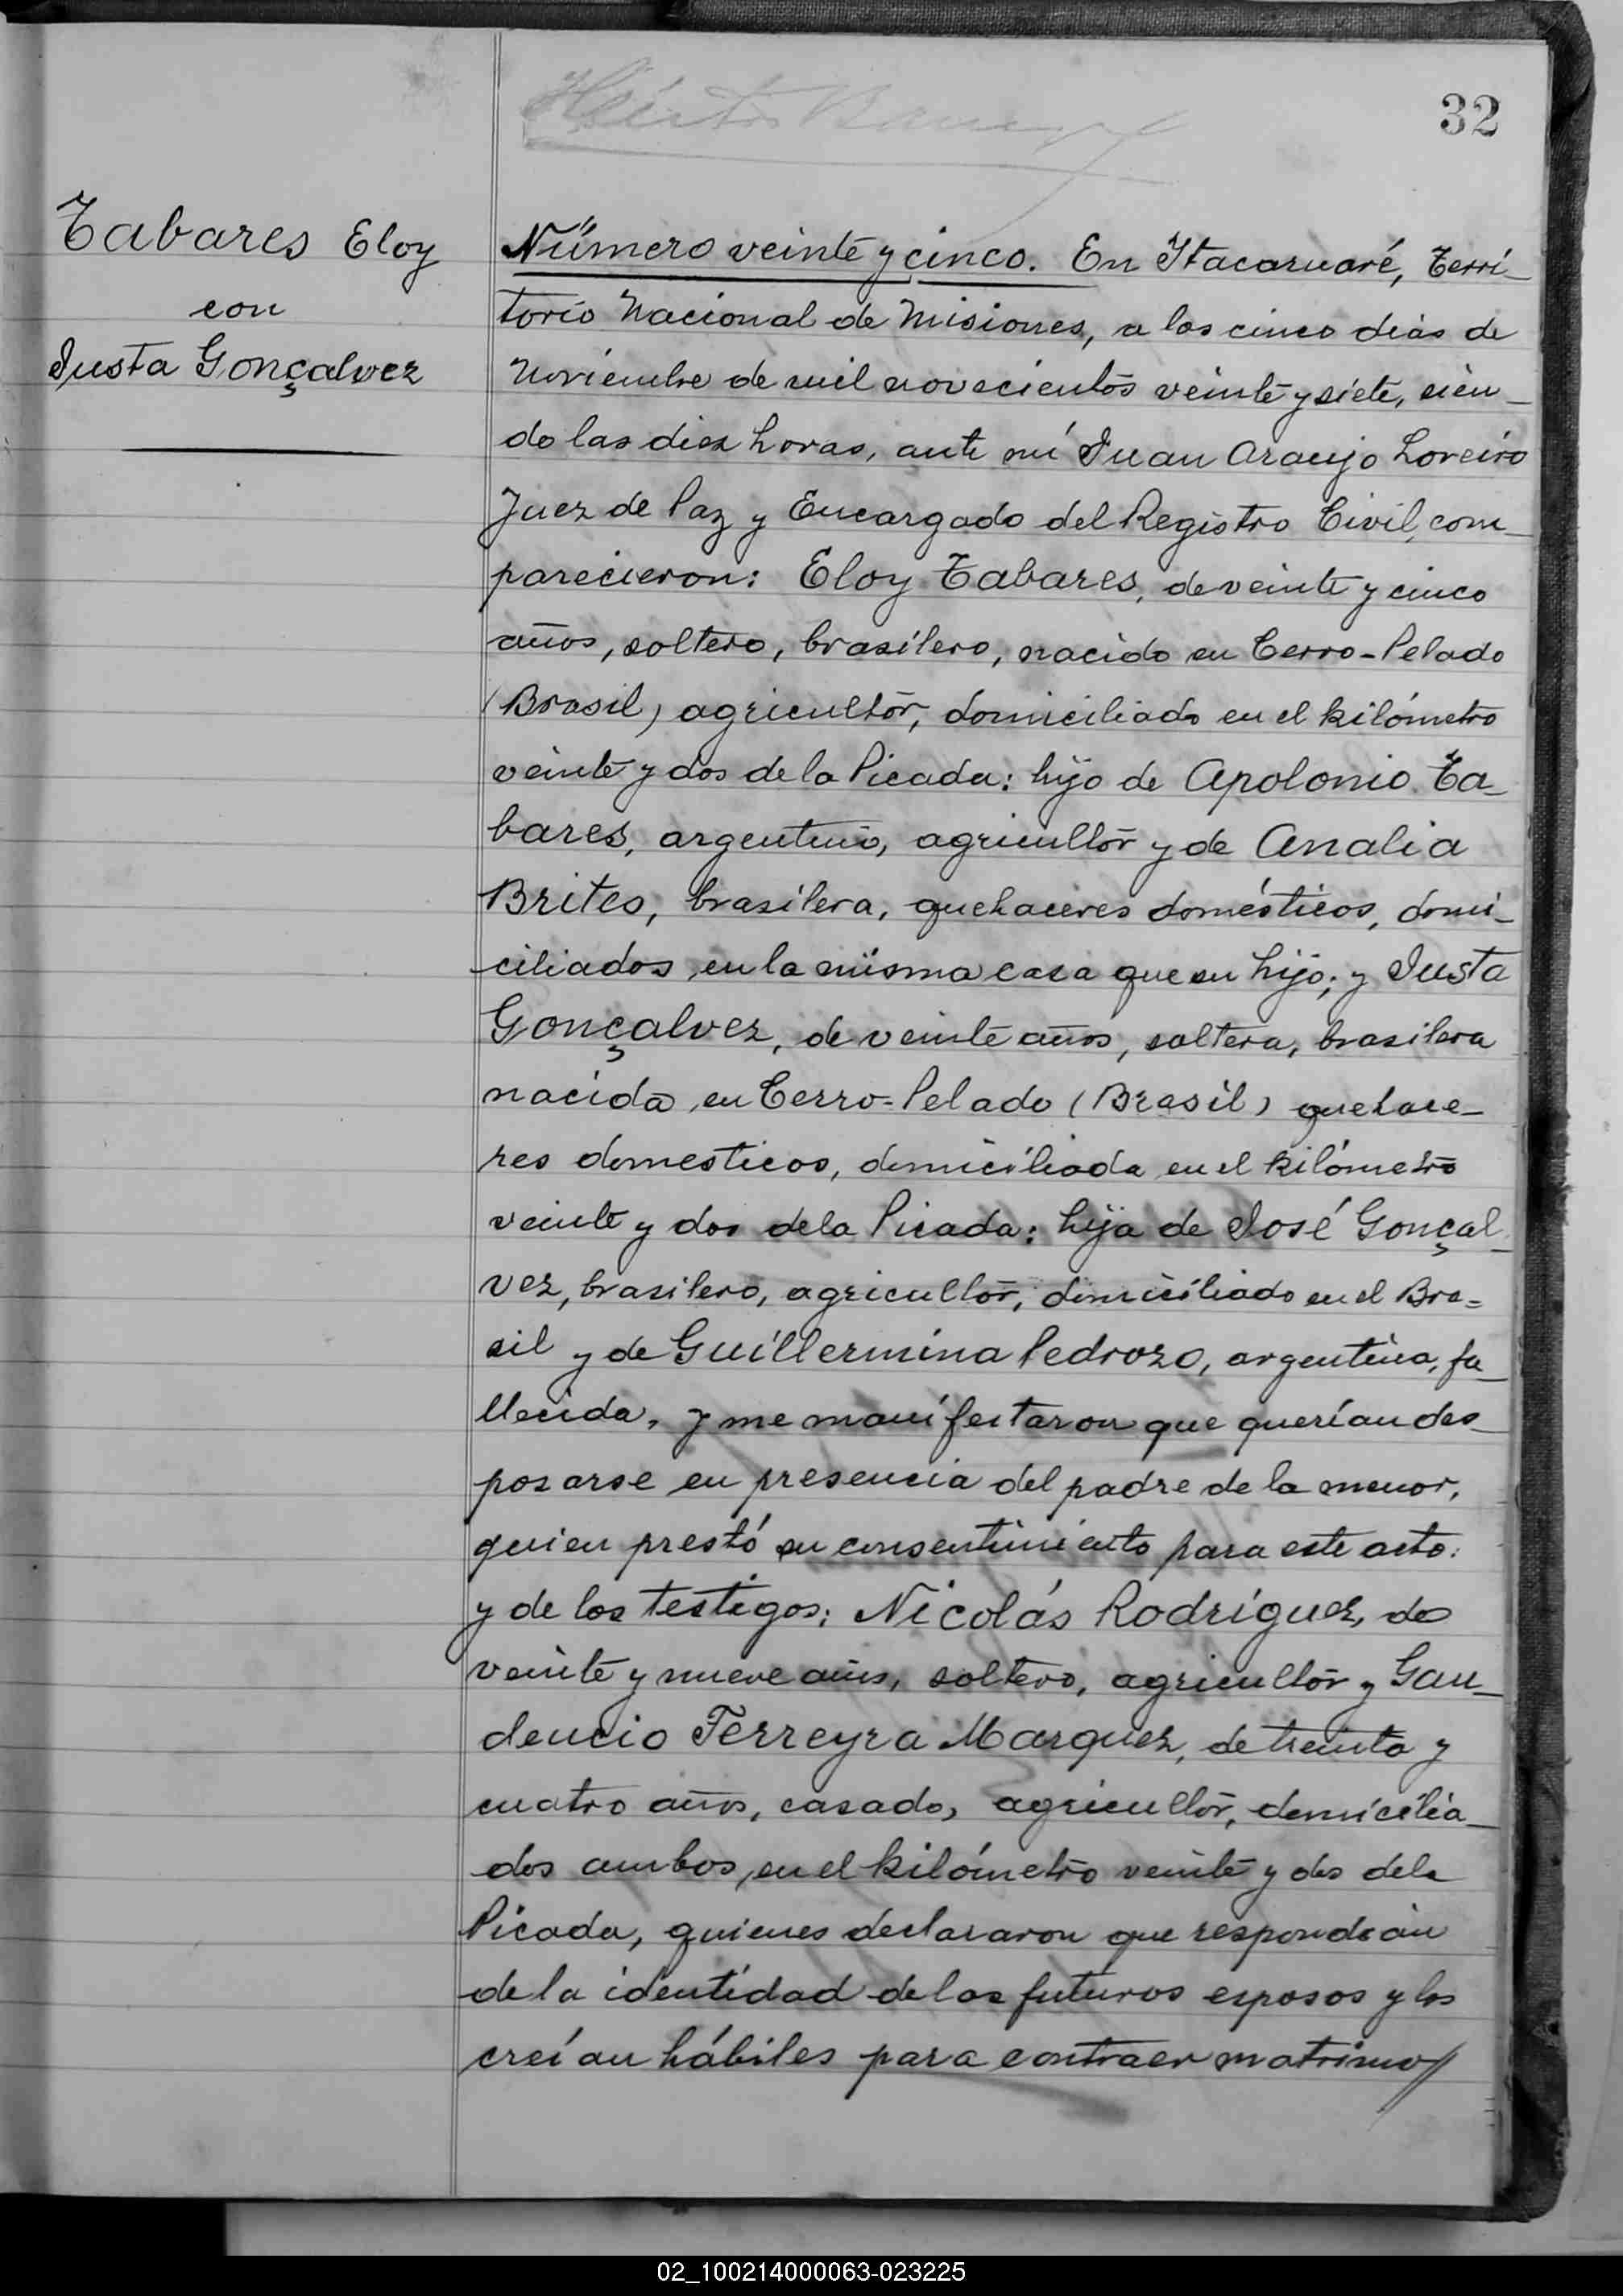 32
Tabares Eloy
con
Justa Gonçalvez
Número veinte y cinco. En Itacaruaré, Terri-
torio Nacional de Misiones, a los cinco dias de
Noviembre de mil novecientos veinte y siete, sien-
do las diez horas, ante mí Juan Araujo Loreiro
Juez de Paz y Encargado del Registro Civil, com-
parecieron: Eloy Tabares, de veinte y cinco
años, soltero, brasilero, nacido en Cerro-Pelado
(Brasil) agricultor, domiciliado en el kilómetro
veinte y dos de la Picada: hijo de Apolonio Ta-
bares, argentino, agricultor y de Analia
Brites, brasilera, quehaceres domésticos, domi-
ciliados en la misma casa que su hijo; y Justa
Gonçalvez, de veinte años, soltera, brasilera
nacida en Cerro-Pelado (Brasil) quehace-
res domesticos, domiciliada en el kilómetro
veinte y dos de la Picada: hija de José Gonçal-
vez, brasilero, agricultor, domiciliado en el Bra-
sil y de Guillermina Pedrozo, argentina, fa-
llecida, y me manifestaron que querían des-
posarse en presencia del padre de la menor,
quien prestó su consentimiento para este acto:
y de los testigos: Nicolás Rodríguez, de
veinte y nueve años, soltero, agricultor y Gau-
dencio Ferreyra Marquez, de treinta y
cuatro años, casado, agricultor, domicilia-
dos ambos, en el kilómetro veinte y dos de la
Picada, quienes declararon que respondian
de la identidad de los futuros esposos y los
creían hábiles para contraer matrimo//
02_100214000063-023225